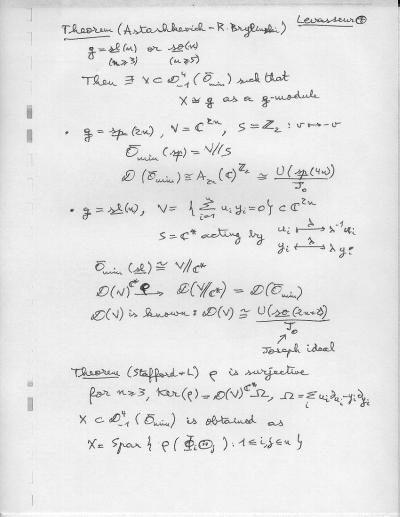 Levasseur ①
Theorem (Astashkevich - R. Brylinski)
g = sl(n) or so(n)
(n≥3) (n≥5)
Then ∃ X ⊂ D⁴₋₁(Ōmin) such that
X ≅ g as a g-module
• g = sp(2n), V = ℂ²ⁿ, S = ℤ₂ : v ↔ -v
Ōmin(sp) = V//S
D(Ōmin) ≅ A₂ₙ(ℂ)^ℤ₂ ≅ U(sp(2n))/J₀
• g = sl(n), V = {Σⁿᵢ₌₁ uᵢyᵢ = 0} ⊂ ℂ²ⁿ
S = ℂ* acting by uᵢ ↦^λ λ⁻¹uᵢ
yᵢ ↦^λ λyᵢ
Ōmin(sl) ≅ V//ℂ*
D(V)^ℂ* →^ρ D(V//ℂ*) = D(Ōmin)
D(V) is known : D(V) ≅ U(so(2n+2))/J₀
Joseph ideal
Theorem (Stafford + L) ρ is surjective
for n≥3, Ker(ρ) = D(V)^ℂ* Ω, Ω = Σᵢ uᵢ∂uᵢ - yᵢ∂yᵢ
X ⊂ D⁴₋₁(Ōmin) is obtained as
X = Span {ρ(Φᵢ Θⱼ) : 1≤i,j≤n}